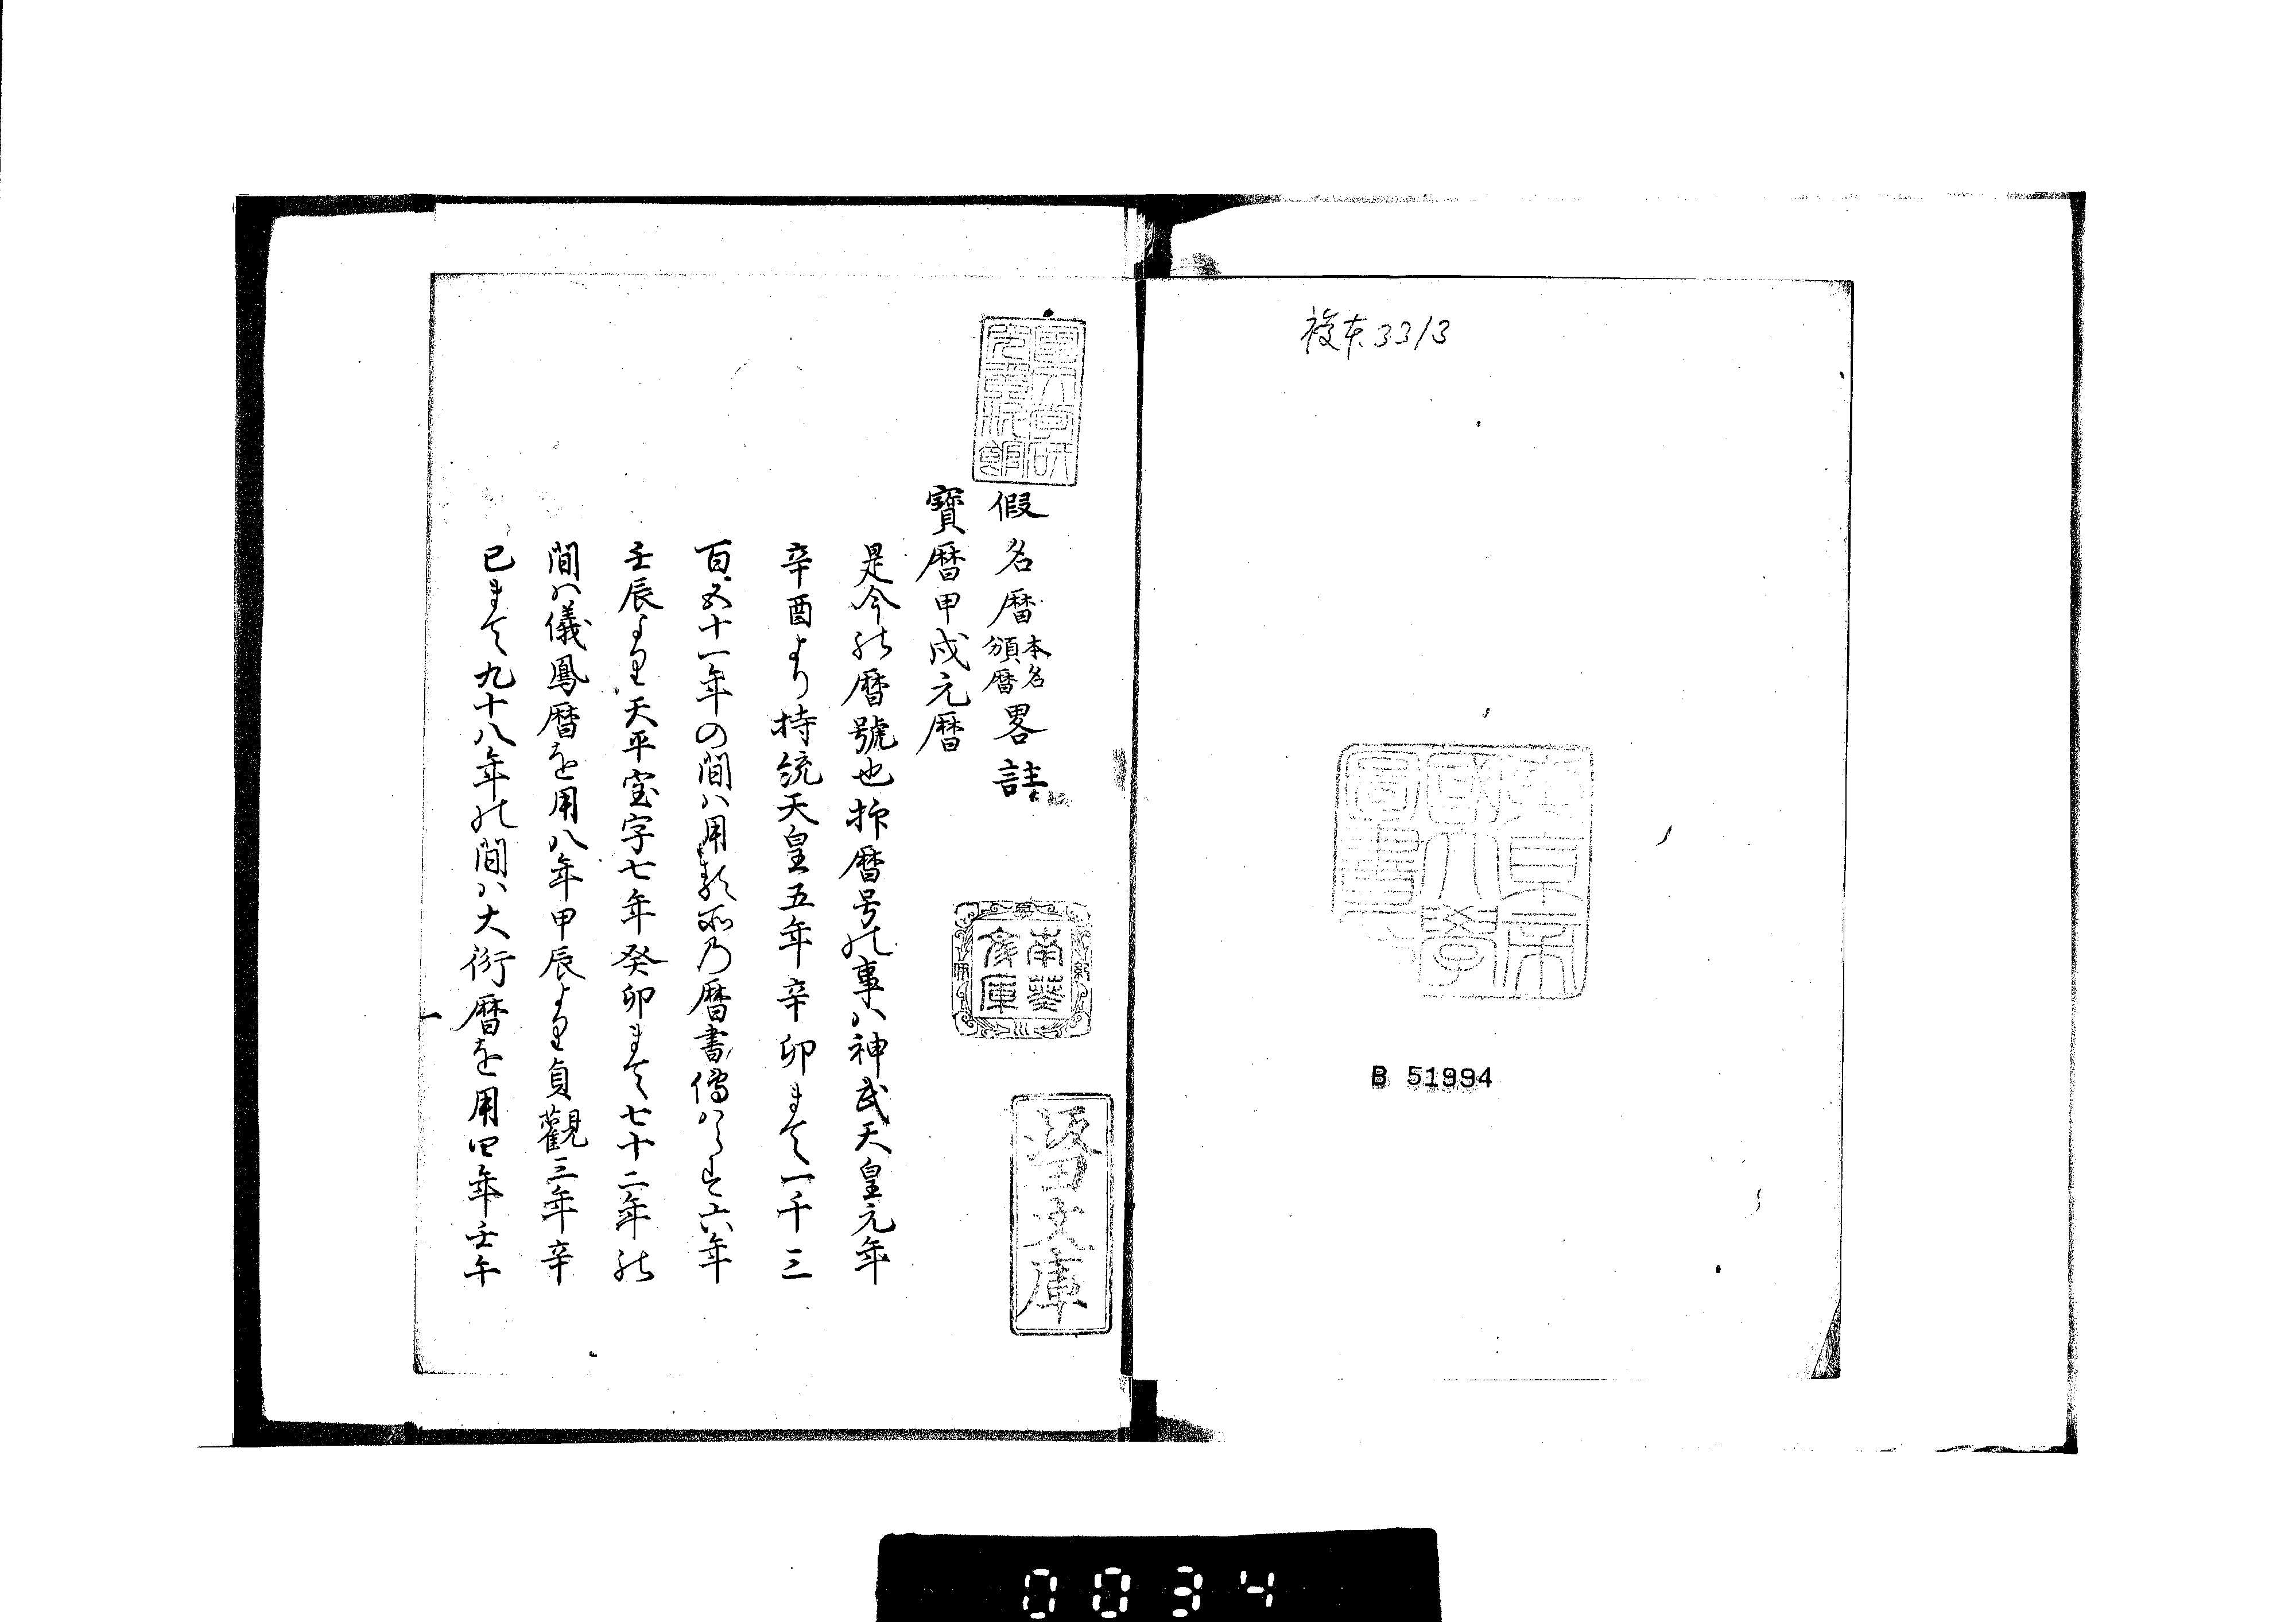 複本3313
東京帝国大学図書
B 51994
假名暦本名頒暦畧註
寶暦甲戌元暦
是今の暦號也抑暦号の事ハ神武天皇元年
辛酉より持統天皇五年辛卯まて一千三
百五十一年の間ハ用る所乃暦書傳ハらす六年
壬辰より天平宝字七年癸卯まて七十二年の
間ハ儀鳳暦を用八年甲辰より貞觀三年辛
巳まて九十八年の間ハ大衍暦を用四年壬午
南葵文庫
阪田文庫
0034